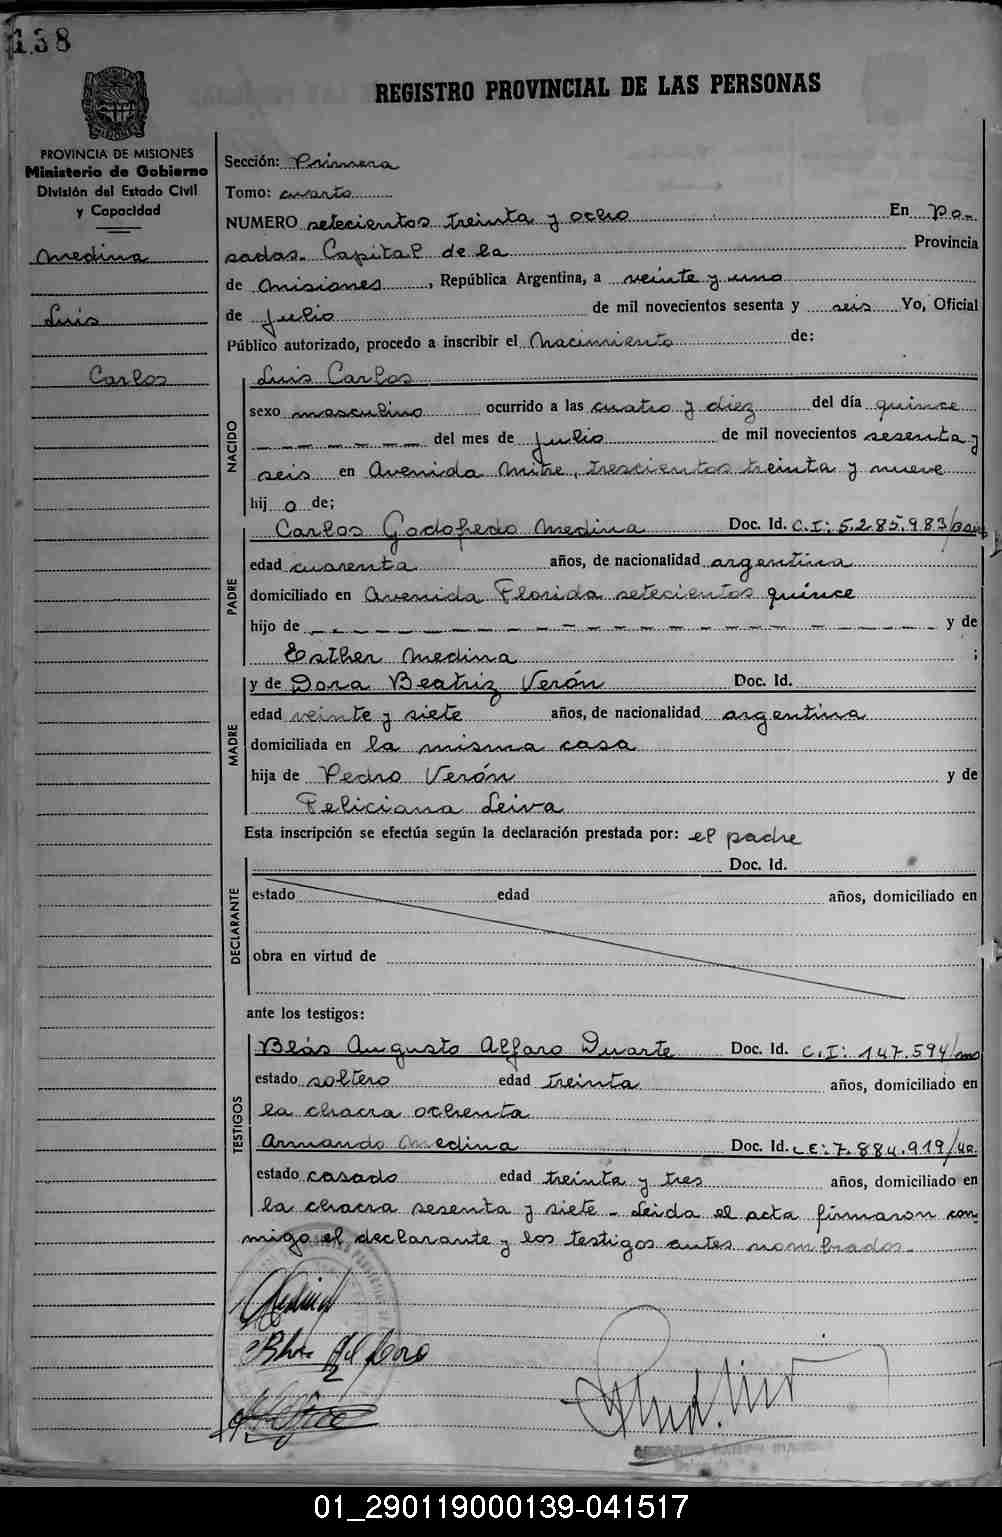 138
REGISTRO PROVINCIAL DE LAS PERSONAS
PROVINCIA DE MISIONES
Ministerio de Gobierno
División del Estado Civil
y Capacidad
Medina
Luis
Carlos
Sección: Primera
Tomo: cuarto
NUMERO setecientos treinta y ocho En Po-
sadas. Capital de la Provincia
de Misiones, República Argentina, a veinte y uno
de julio de mil novecientos sesenta y seis Yo, Oficial
Público autorizado, procedo a inscribir el Nacimiento de:
NACIDO
Luis Carlos
sexo masculino ocurrido a las cuatro y diez del día quince
del mes de julio de mil novecientos sesenta y
seis en Avenida Mitre, trescientos treinta y nueve
hijo de;
PADRE
Carlos Godofredo Medina Doc. Id. C.I: 5.285.983/
edad cuarenta años, de nacionalidad argentina
domiciliado en Avenida Florida setecientos quince
hijo de y de
Esther Medina ;
MADRE
y de Dora Beatriz Verón Doc. Id.
edad veinte y siete años, de nacionalidad argentina
domiciliada en la misma casa
hija de Pedro Verón y de
Feliciana Leiva
Esta inscripción se efectúa según la declaración prestada por: el padre
DECLARANTE
Doc. Id.
estado edad años, domiciliado en
obra en virtud de
ante los testigos:
TESTIGOS
Blás Augusto Alfaro Duarte Doc. Id. C.I: 147.594/
estado soltero edad treinta años, domiciliado en
la chacra ochenta
Armando Medina Doc. Id. L E: 7.884.919/
estado casado edad treinta y tres años, domiciliado en
la chacra sesenta y siete - Leida el acta firmaron con-
migo el declarante y los testigos antes nombrados.
01_290119000139-041517